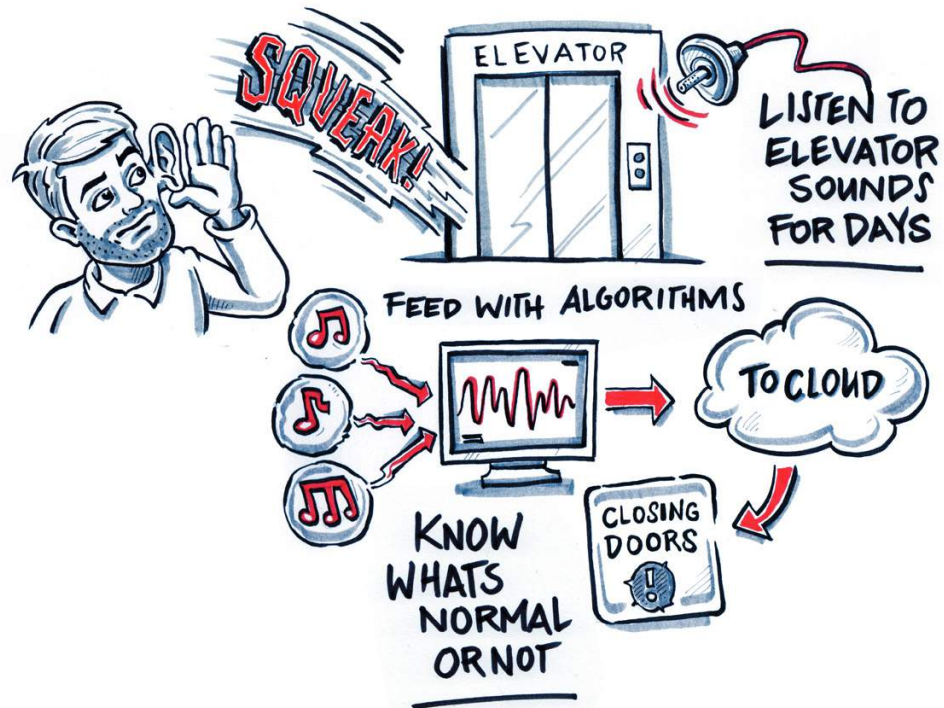 SQUEAK!
ELEVATOR
LISTEN TO
ELEVATOR
SOUNDS
FOR DAYS
FEED WITH ALGORITHMS
TO CLOUD
CLOSING
DOORS
!
KNOW
WHATS
NORMAL
OR NOT